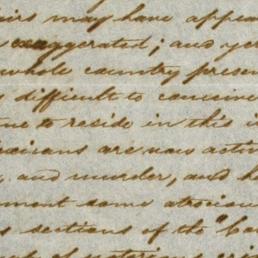 irs may have appea
exaggerated; and ye
whole country presen
difficult to conceive
me to reside in this i
exicans are now activ
, and murder, and h
ment some atrociou
s sections of the "Ca
of notorious crim